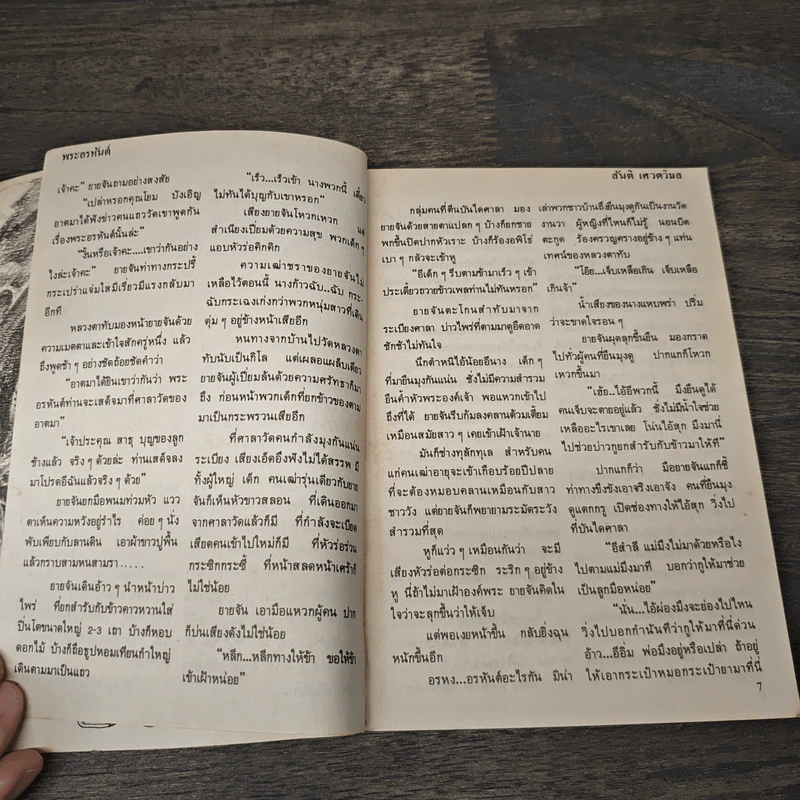 พระอรหันต์
เจ้าคะ" ยายจันถามอย่างสงสัย
"เปล่าหรอกคุณโยม บังเอิญ
อาตมาได้ฟังข่าวคนแถววัดเขาพูดกัน
เรื่องพระอรหันต์นั้นล่ะ"
"งั้นหรือเจ้าคะ....เขาว่ากันอย่าง
ไรล่ะเจ้าคะ" ยายจันท่าทางกระปรี้
กระเปร่าแจ่มใสมีเรี่ยวมีแรงกลับมา
อีกที
หลวงตาทับมองหน้ายายจันด้วย
ความเมตตาและเข้าใจสักครู่หนึ่ง แล้ว
ถึงพูดช้า ๆ อย่างชัดถ้อยชัดคำว่า
"อาตมาได้ยินเขาว่ากันว่า พระ
อรหันต์ท่านจะเสด็จมาที่ศาลาวัดของ
อาตมา"
"เจ้าประคุณ สาธุ บุญของลูก
ช้างแล้ว จริง ๆ ด้วยล่ะ ท่านเสด็จลง
มาโปรดอีฉันแล้วจริง ๆ ด้วย"
ยายจันยกมือพนมท่วมหัว แวว
ตาเห็นความหวังอยู่รำไร ค่อย ๆ นั่ง
พับเพียบกับลานดิน เอาผ้าขาวปูพื้น
แล้วกราบสามหนสามรา.....
ยายจันเดินอ้าว ๆ นำหน้าบ่าว
ไพร่ ที่ยกสำรับกับข้าวคาวหวานใส่
ปิ่นโตขนาดใหญ่ 2-3 เถา บ้างก็หอบ
ดอกไม้ บ้างก็ถือธูปหอมเทียนกำใหญ่
เดินตามมาเป็นแถว
"เร็ว...เร็วเข้า นางพวกนี้ เดี๋ยว
ไม่ทันได้บุญกับเขาหรอก"
เสียงยายจันโหวกเหวก แต่
สำเนียงเปี่ยมด้วยความสุข พวกเด็ก ๆ
แอบหัวร่อคิกคิก
ความเฒ่าชราของยายจันไม่
เหลือไว้ตอนนี้ นางก้าวฉับ..ฉับ กระ-
ฉับกระเฉงเก่งกว่าพวกหนุ่มสาวที่เดิน
ดุ่ม ๆ อยู่ข้างหน้าเสียอีก
หนทางจากบ้านไปวัดหลวงตา
ทับนับเป็นกิโล แต่เผลอแผล็บเดียว
ยายจันผู้เปี่ยมล้นด้วยความศรัทธาก็มา
ถึง ก่อนหน้าพวกเด็กที่ยกข้าวของตาม
มาเป็นกระพรวนเสียอีก
ที่ศาลาวัดคนกำลังมุงกันแน่น
ระเบียง เสียงเอ็ดอึงฟังไม่ได้สรรพ มี
ทั้งผู้ใหญ่ เด็ก คนเฒ่ารุ่นเดียวกับยาย
จันก็เห็นหัวขาวสลอน ที่เดินออกมา
จากศาลาวัดแล้วก็มี ที่กำลังจะเบียด
เสียดคนเข้าไปใหม่ก็มี ที่หัวร่อร่วน
กระซิกกระซี้ ที่หน้าสลดหน้าเศร้าก็
ไม่ใช่น้อย
ยายจัน เอามือแหวกผู้คน ปาก
ก็บ่นเสียงดังไม่ใช่น้อย
"หลีก...หลีกทางให้ข้า ขอให้ข้า
เข้าเฝ้าหน่อย"
สันติ เศวตวิมล
กลุ่มคนที่ตีนบันไดศาลา มอง
ยายจันด้วยสายตาแปลก ๆ บ้างก็ยกชาย
พกขึ้นปิดปากหัวเราะ บ้างก็ร้องอคิโช่
เบา ๆ กลัวจะเข้าหู
"อีเด็ก ๆ รีบตามข้ามาเร็ว ๆ เข้า
ประเดี๋ยวถวายข้าวเพลท่านไม่ทันหรอก"
ยายจันตะโกนสำทับมาจาก
ระเบียงศาลา บ่าวไพร่ที่ตามมาดูอืดอาด
ชักช้าไม่ทันใจ
นึกตำหนิไอ้น้อยอีนาง เด็ก ๆ
ที่มายืนมุงกันแน่น ช่างไม่มีความสำรวม
ยืนค้ำหัวพระองค์เจ้า พอแหวกเข้าไป
ถึงที่ได้ ยายจันรีบก้มลงคลานต้วมเตี้ยม
เหมือนสมัยสาว ๆ เคยเข้าเฝ้าเจ้านาย
มันก็ช่างทุลักทุเล สำหรับคน
แก่คนเฒ่าอายุจะเข้าเกือบร้อยปีปลาย
ที่จะต้องหมอบคลานเหมือนกับสาว
ชาววัง แต่ยายจันก็พยายามระมัดระวัง
สำรวมที่สุด
หูก็แว่ว ๆ เหมือนกันว่า จะมี
เสียงหัวร่อต่อกระซิก ระริก ๆ อยู่ข้าง
หู นี่ถ้าไม่มาเฝ้าองค์พระ ยายจันคิดใน
ใจว่าจะลุกขึ้นว่าให้เจ็บ
แต่พอเงยหน้าขึ้น กลับยิ่งฉุน
หนักขึ้นอีก
อรหง...อรหันต์อะไรกัน มิน่า
เล่าพวกชาวบ้านถึงยืนมุงดูกันเป็นงานวัด
งานวา ผู้หญิงที่ไหนก็ไม่รู้ นอนบิด
ตะกูด ร้องครวญครางอยู่ข้าง ๆ แท่น
เทศน์ของหลวงตาทับ
"โอ๊ย...เจ็บเหลือเกิน เจ็บเหลือ
เกินจ้า"
น้ำเสียงของนางแหบพร่า ปริ่ม
ว่าจะขาดใจรอน ๆ
ยายจันผุดลุกขึ้นยืน มองกราด
ไปทั่วผู้คนที่ยืนมุงดู ปากแกก็โหวก
เหวกขึ้นมา
"เฮ้ย...ไอ้อีพวกนี้ มึงยืนดูได้
คนเจ็บจะตายอยู่แล้ว ช่างไม่มีน้ำใจช่วย
เหลืออะไรเขาเลย โน่นไอ้สุก มึงมานี่
ไปช่วยบ่าวกูยกสำรับกับข้าวมาให้ที"
ปากแกก็ว่า มือยายจันแกก็ชี้
ท่าทางขึงขังเอาจริงเอาจัง คนที่ยืนมุง
ดูแตกกรู เปิดช่องทางให้ไอ้สุก วิ่งไป
ที่บันไดศาลา
"อีสำลี แม่มึงไม่มาด้วยหรือไง
ไปตามแม่มึงมาที บอกว่ากูให้มาช่วย
เป็นลูกมือหน่อย"
"นั่น...ไอ้ผ่องมึงจะย่องไปไหน
วิ่งไปบอกกำนันทีว่ากูให้มาที่นี่ด่วน
อ้าว...อีอิ่ม พ่อมึงอยู่หรือเปล่า ถ้าอยู่
ให้เอากระเป๋าหมอกระเป๋ายามาที่นี่
7